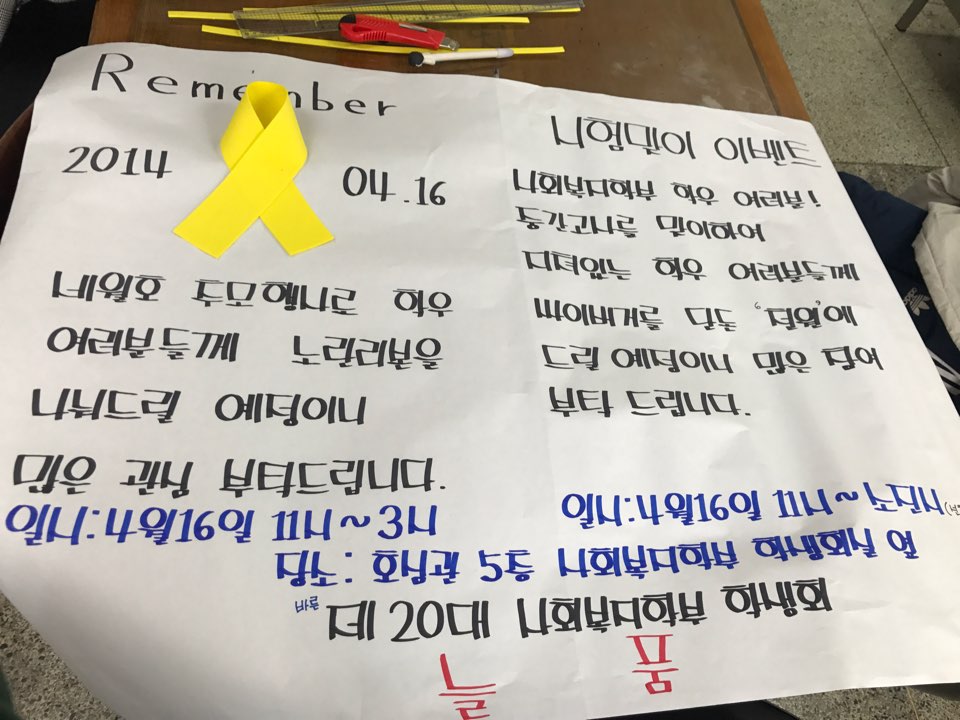 Remember
2014 04.16
세월호 추모행사로 학우
여러분들께 노란리본을
나눠드릴 예정이니
많은 관심 부탁드립니다.
일시:4월16일 11시~3시
시험맞이 이벤트
사회복지학부 학우 여러분!
중간고사를 맞이하여
지쳐있는 학우 여러분들께
싸이버거를 단돈 '천원'에
드릴 예정이니 많은 참여
부탁 드립니다.
일시:4월16일 11시~소진시
장소: 호심관 5층 사회복지학부 학생회실 앞
바를
제20대 사회복지학부 학생회
품